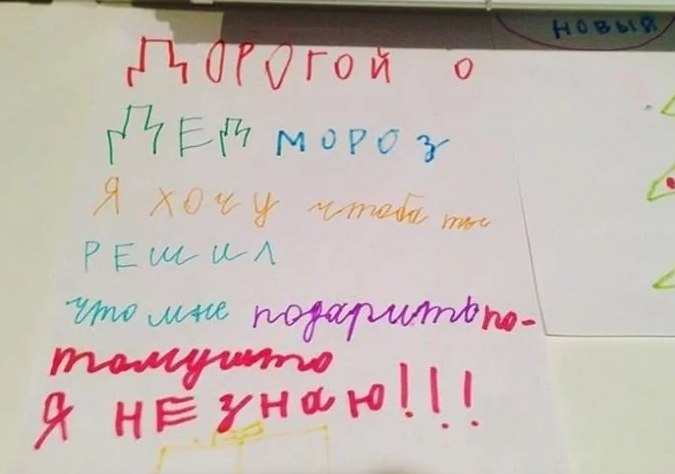 новый
Дорогой о
Дед мороз
Я хочу чтоба ты
решил
что мне подарить по-
томушто
Я не знаю!!!